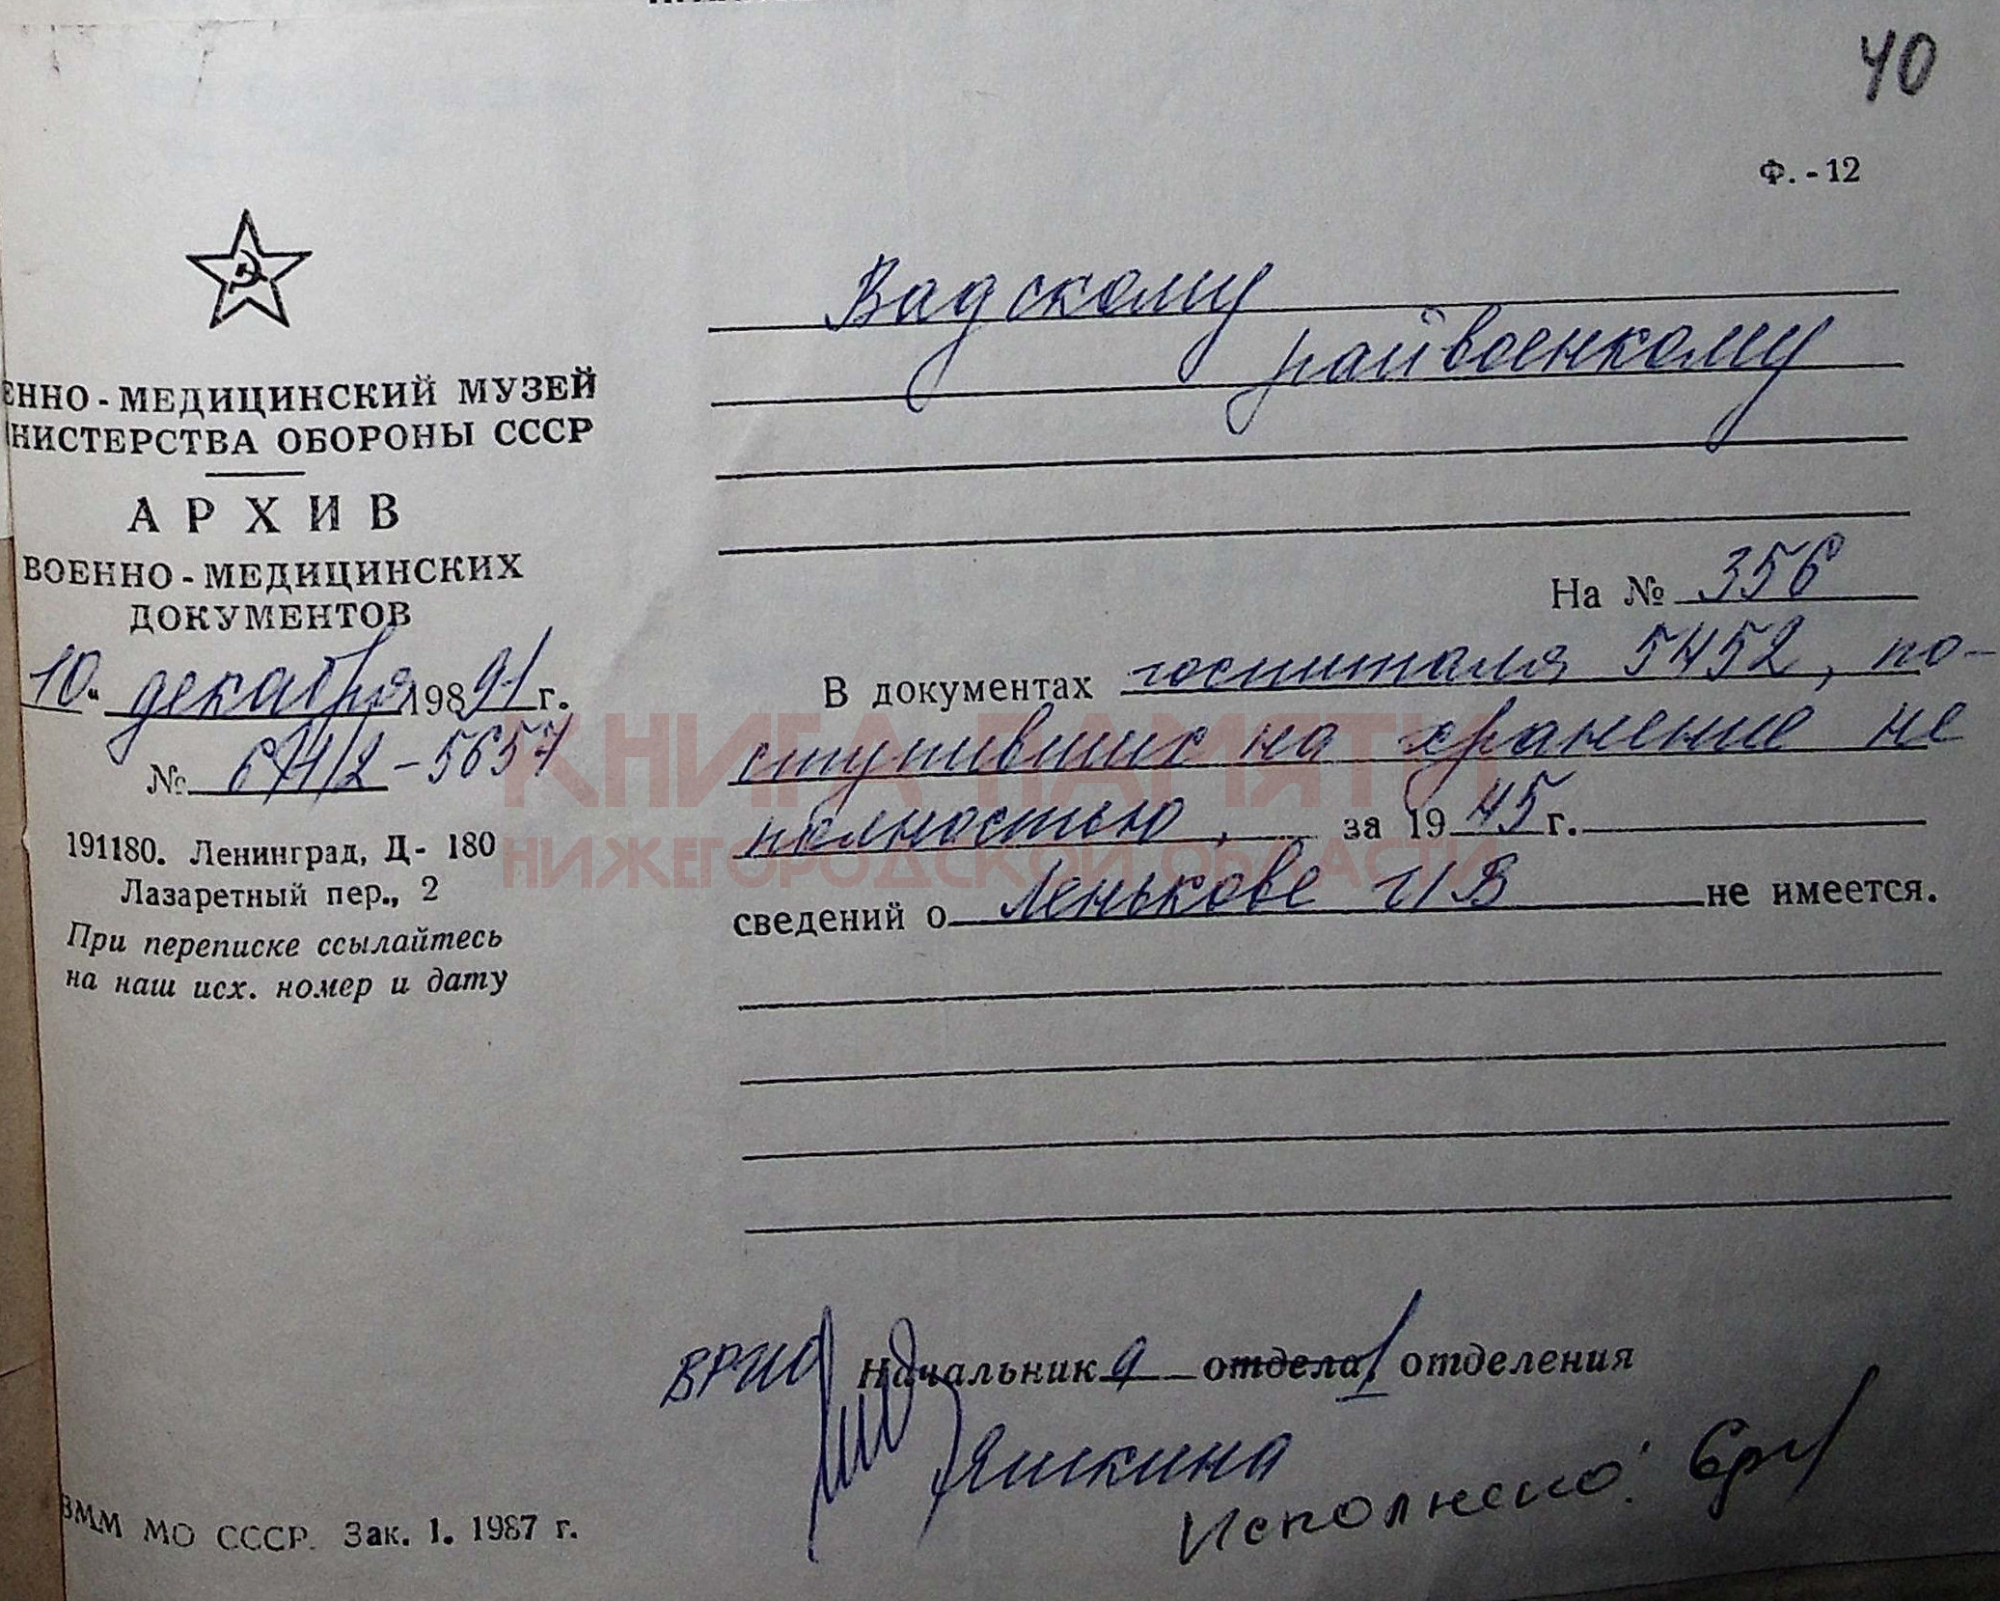 40
Ф. - 12
ЕННО - МЕДИЦИНСКИЙ МУЗЕЙ
НИСТЕРСТВА ОБОРОНЫ СССР
АРХИВ
ВОЕННО - МЕДИЦИНСКИХ
ДОКУМЕНТОВ
10 " декабря 198 91 г.
№ 6/4/2-5657
191180. Ленинград, Д - 180
Лазаретный пер., 2
При переписке ссылайтесь
на наш исх. номер и дату
Вадскому
райвоенкому
На № 356
В документах госпиталя 5452, по-
ступивших на хранение не
полностью, за 19 45 г.
сведений о Ленькове И В не имеется.
КНИГА ПАМЯТИ
НИЖЕГОРОДСКОЙ ОБЛАСТИ
ВРИО Начальник а отдела 1 отделения
Яшкина
Исполнено:
ВММ МО СССР. Зак. 1. 1987 г.